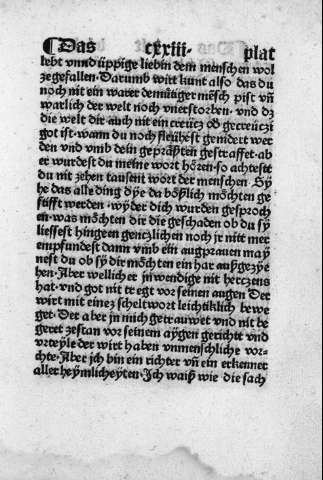 ¶Das cxxiii· plat
lebt vnnd üppige liebin dem menschen wol
zegefallen· Darumb wirt kunt also das du
noch nit ein warer demütiger mēsch pist vñ
warlich der welt nit vnerstorben· vnd dz
die welt dir auch nit ein creütz od̄ gecreützi
got ist· wann du noch fleühest genidert wer
den vnd vmb dein geprästen gestraffet· ab
er wurdest du meine wort hören· so achtestt
du nit zehen tausent wort der menschen· Sy
he das alle ding dÿe da bößlich möchten ge
stifft werden· wÿder dich wurden gesproch
en· was möchten dir die geschaden ob du sÿ
liessest hingeen gentzlichen noch jr nitt mer
empfundest dann vmb ein augprauen maÿ
nest du ob sÿ dir möchten ein har außgezÿe
hen· Aber wellicher jnwendige nit hertzens
hat· vnd got nit tregt vor seinen augen Der
wirt mit einez scheltwort leichtiklich bewe
get· Der aber jn mich getrauwet vnd nit be
geret zestan vor seinem aÿgen gericht vnd
vrteyle der wirt haben vnmenschliche vor·
chte· Aber jch bin ein richter vñ ein erkenner
aller heÿmlicheyten· Ich waiß wie die sach